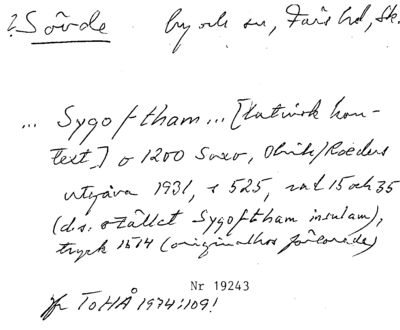 ? Sövde by och sn, Färs hd, Sk.
... Sygoftham ... [latinsk kon-
text] o 1200 Saxo, Olrik/Ræders
utgåva 1931, s 525, rad 15 och 35
(d.s. stället Sygoftham insulam),
tryck 1514 (originalhs förlorade)
Nr 19243
Jfr ToHÅ 1974:109!